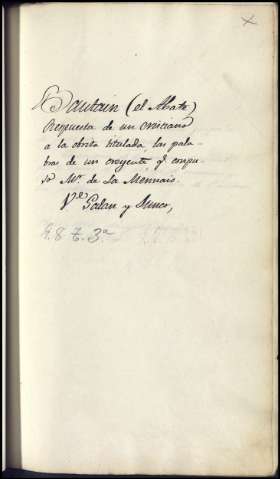 Bautain (el Abate)
Respuesta de un cristiano
a la obrita titulada, las pala-
bras de un creyente q.e compu-
so Mr. de La Mennais.
V.e Galan y Junco,
G. 8 t. 3ª